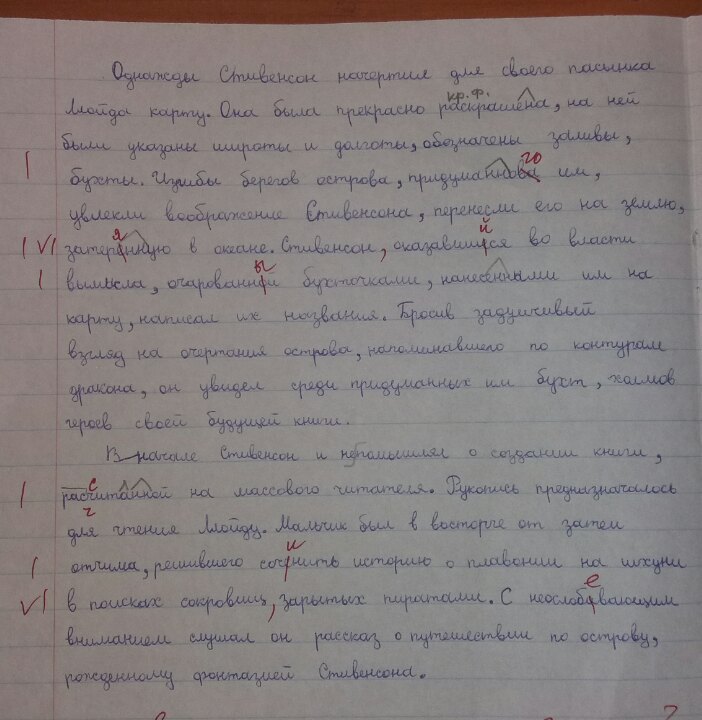 Однажды Стивенсон начертил для своего пасынка
кр.ф.
Ллойда карту. Она была прекрасно раскрашена, на ней
были указаны широты и долготы, обозначены заливы,
го
бухты. Изгибы берегов острова, придуманнова им,
увлекли воображение Стивенсона, перенесли его на землю,
я й
затереннную в океане. Стивенсон, оказавшиися во власти
ы
вымысла, очарованнии бухточками, нанесенными им на
карту, написал их названия. Бросив задумчивый
взгляд на очертания острова, напоминавшего по контурам
дракона, он увидел среди придуманных им бухт, холмов
героев своей будущей книги.
В начале Стивенсон и не помышлял о создании книги,
с
расчитанной на массового читателя. Рукопись предназначалось
г
для чтения Ллойду. Мальчик был в восторге от затеи
и
отчима, решившего сочинить историю о плавании на шхуни
е
в поисках сокровищ, зарытых пиратами. С неослобивающим
вниманием слушал он рассказ о путешествии по острову,
рожденному фонтазией Стивенсона.